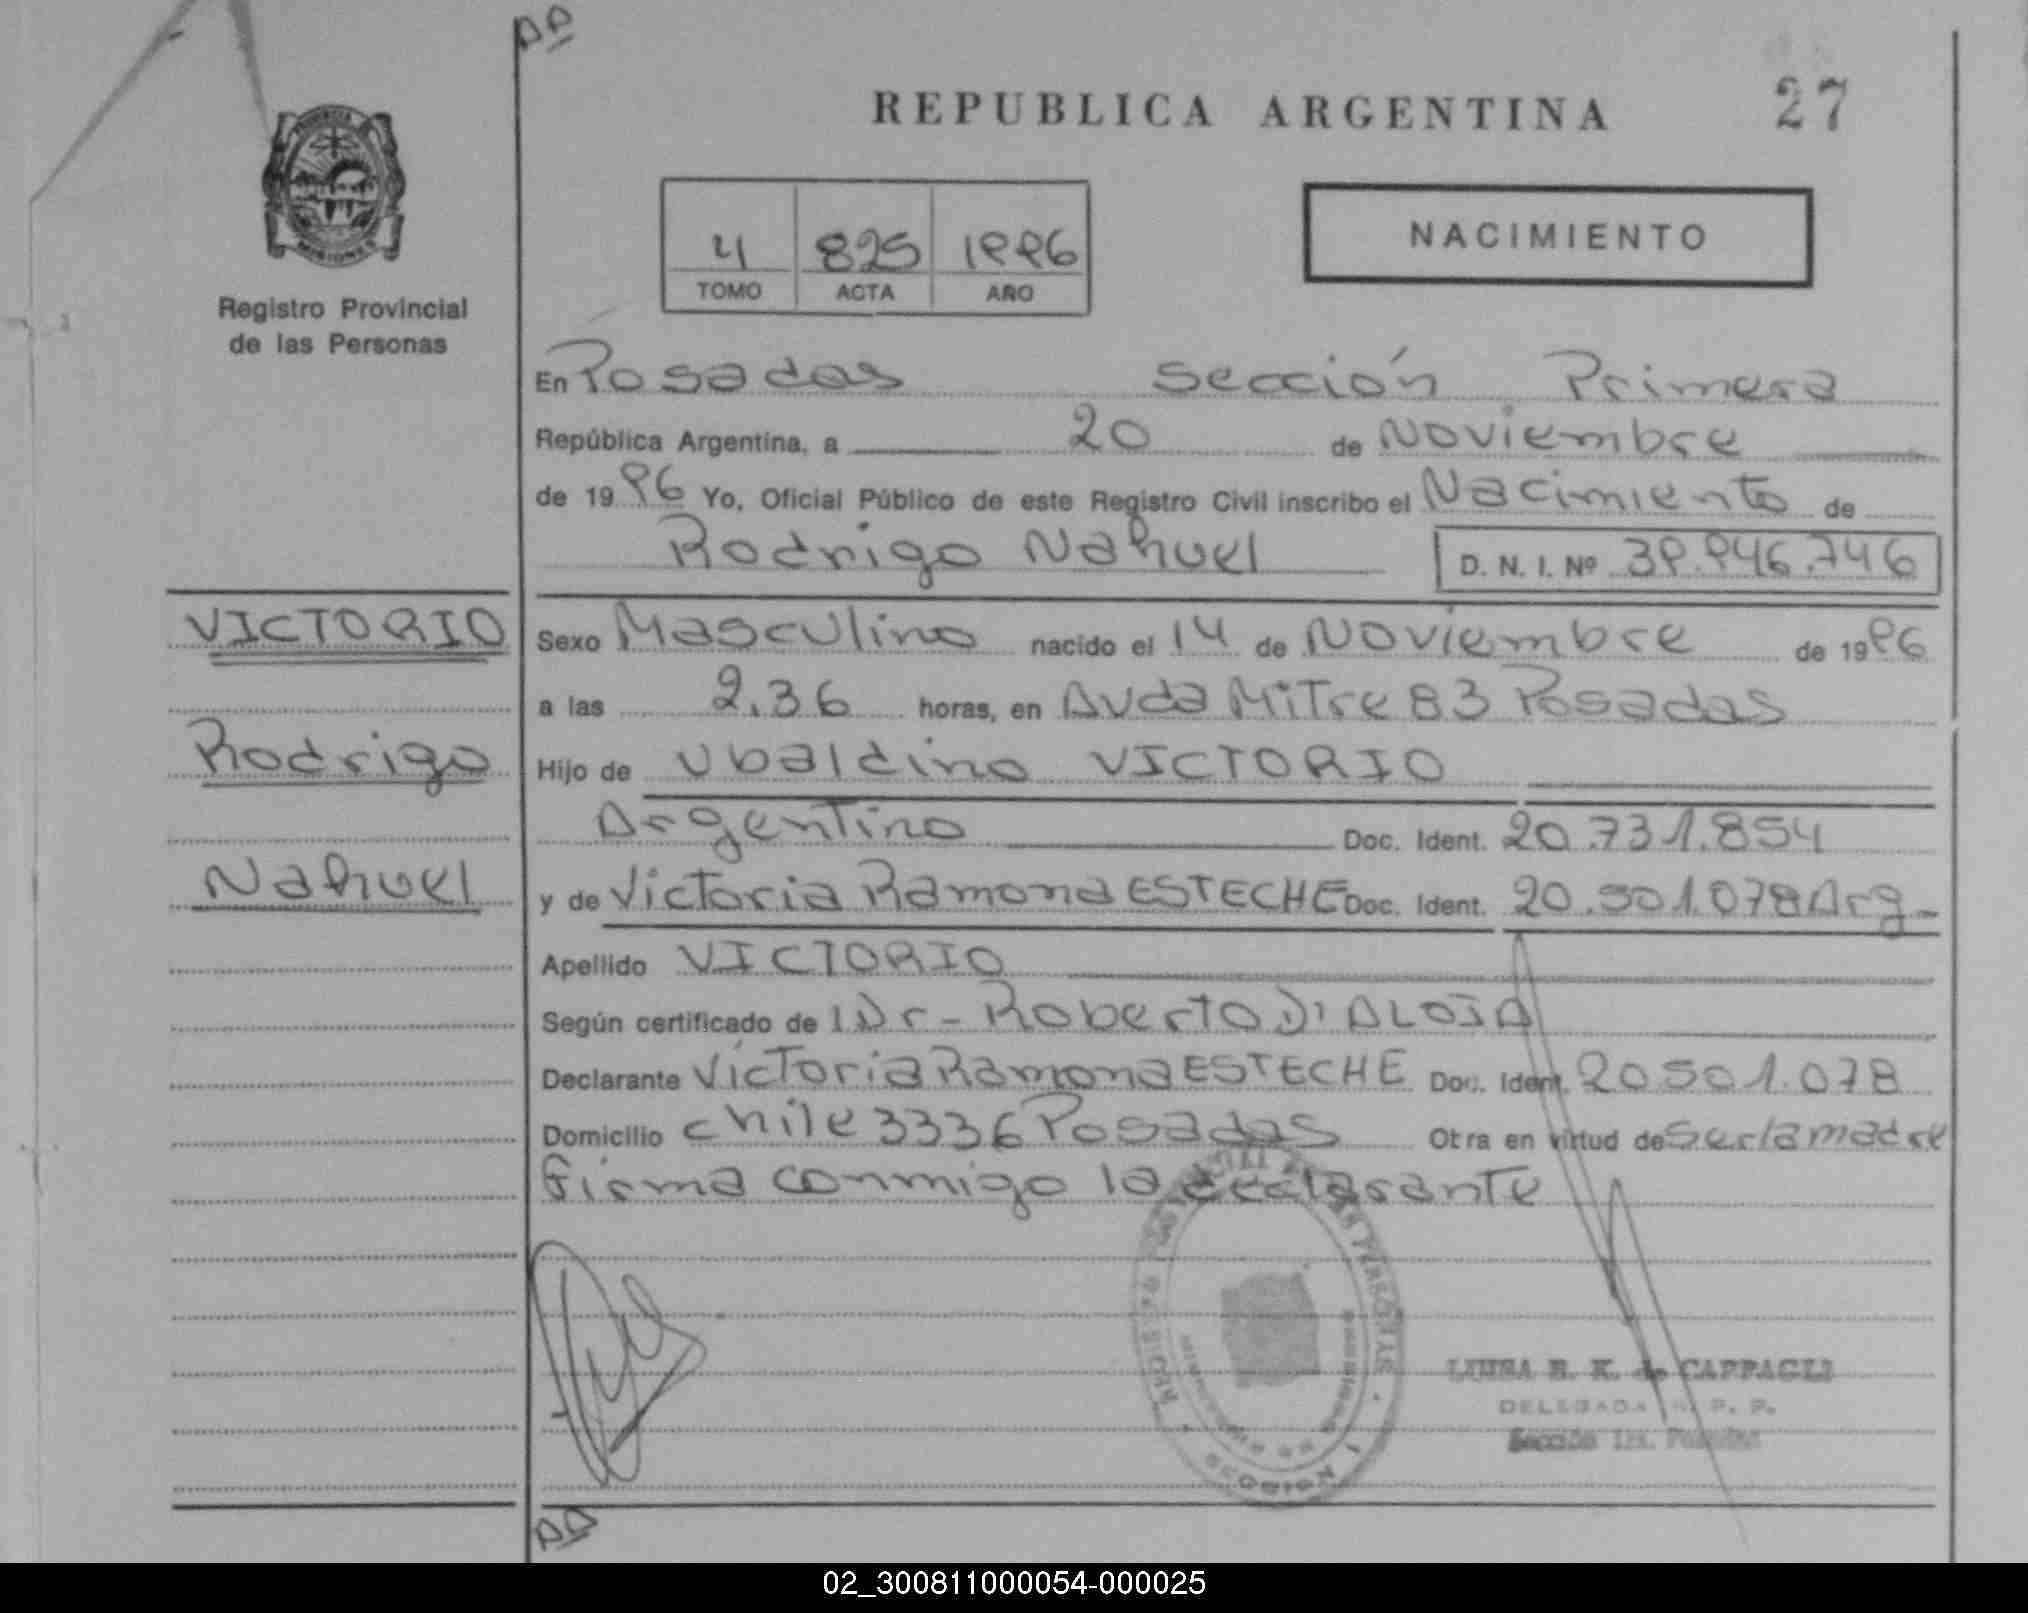 REPUBLICA ARGENTINA
27
MISIONES
Registro Provincial
de las Personas
4 825 1996
TOMO ACTA AÑO
NACIMIENTO
En Posadas Sección Primera
República Argentina, a 20 de Noviembre
de 1996 Yo, Oficial Público de este Registro Civil inscribo el Nacimiento de
Rodrigo Nahuel D. N. I. Nº 39.946.746
VICTORIO
Rodrigo
Nahuel
Sexo Masculino nacido el 14 de Noviembre de 1996
a las 2.36 horas, en Avda Mitre 83 Posadas
Hijo de Ubaldino VICTORIO
Argentino Doc. Ident. 20.731.854
y de Victoria Ramona ESTECHE Doc. Ident. 20.501.078 Arg-
Apellido VICTORIO
Según certificado de l Dr- Roberto D'ALOIA
Declarante Victoria Ramona ESTECHE Doc. Ident. 20501.078
Domicilio Chile 3336 Posadas Otra en virtud de Ser la madre
firma conmigo la declarante
SECCION 1
de CAPPAGLI
DELEGADA R. P. P.
Sección 1ra. Posadas
02_300811000054-000025